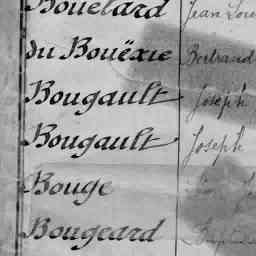 Bouëtard Jean Lou
du Bouëxic Bertrand
Bougault Joseph
Bougault Joseph
Bouge
Bougeard